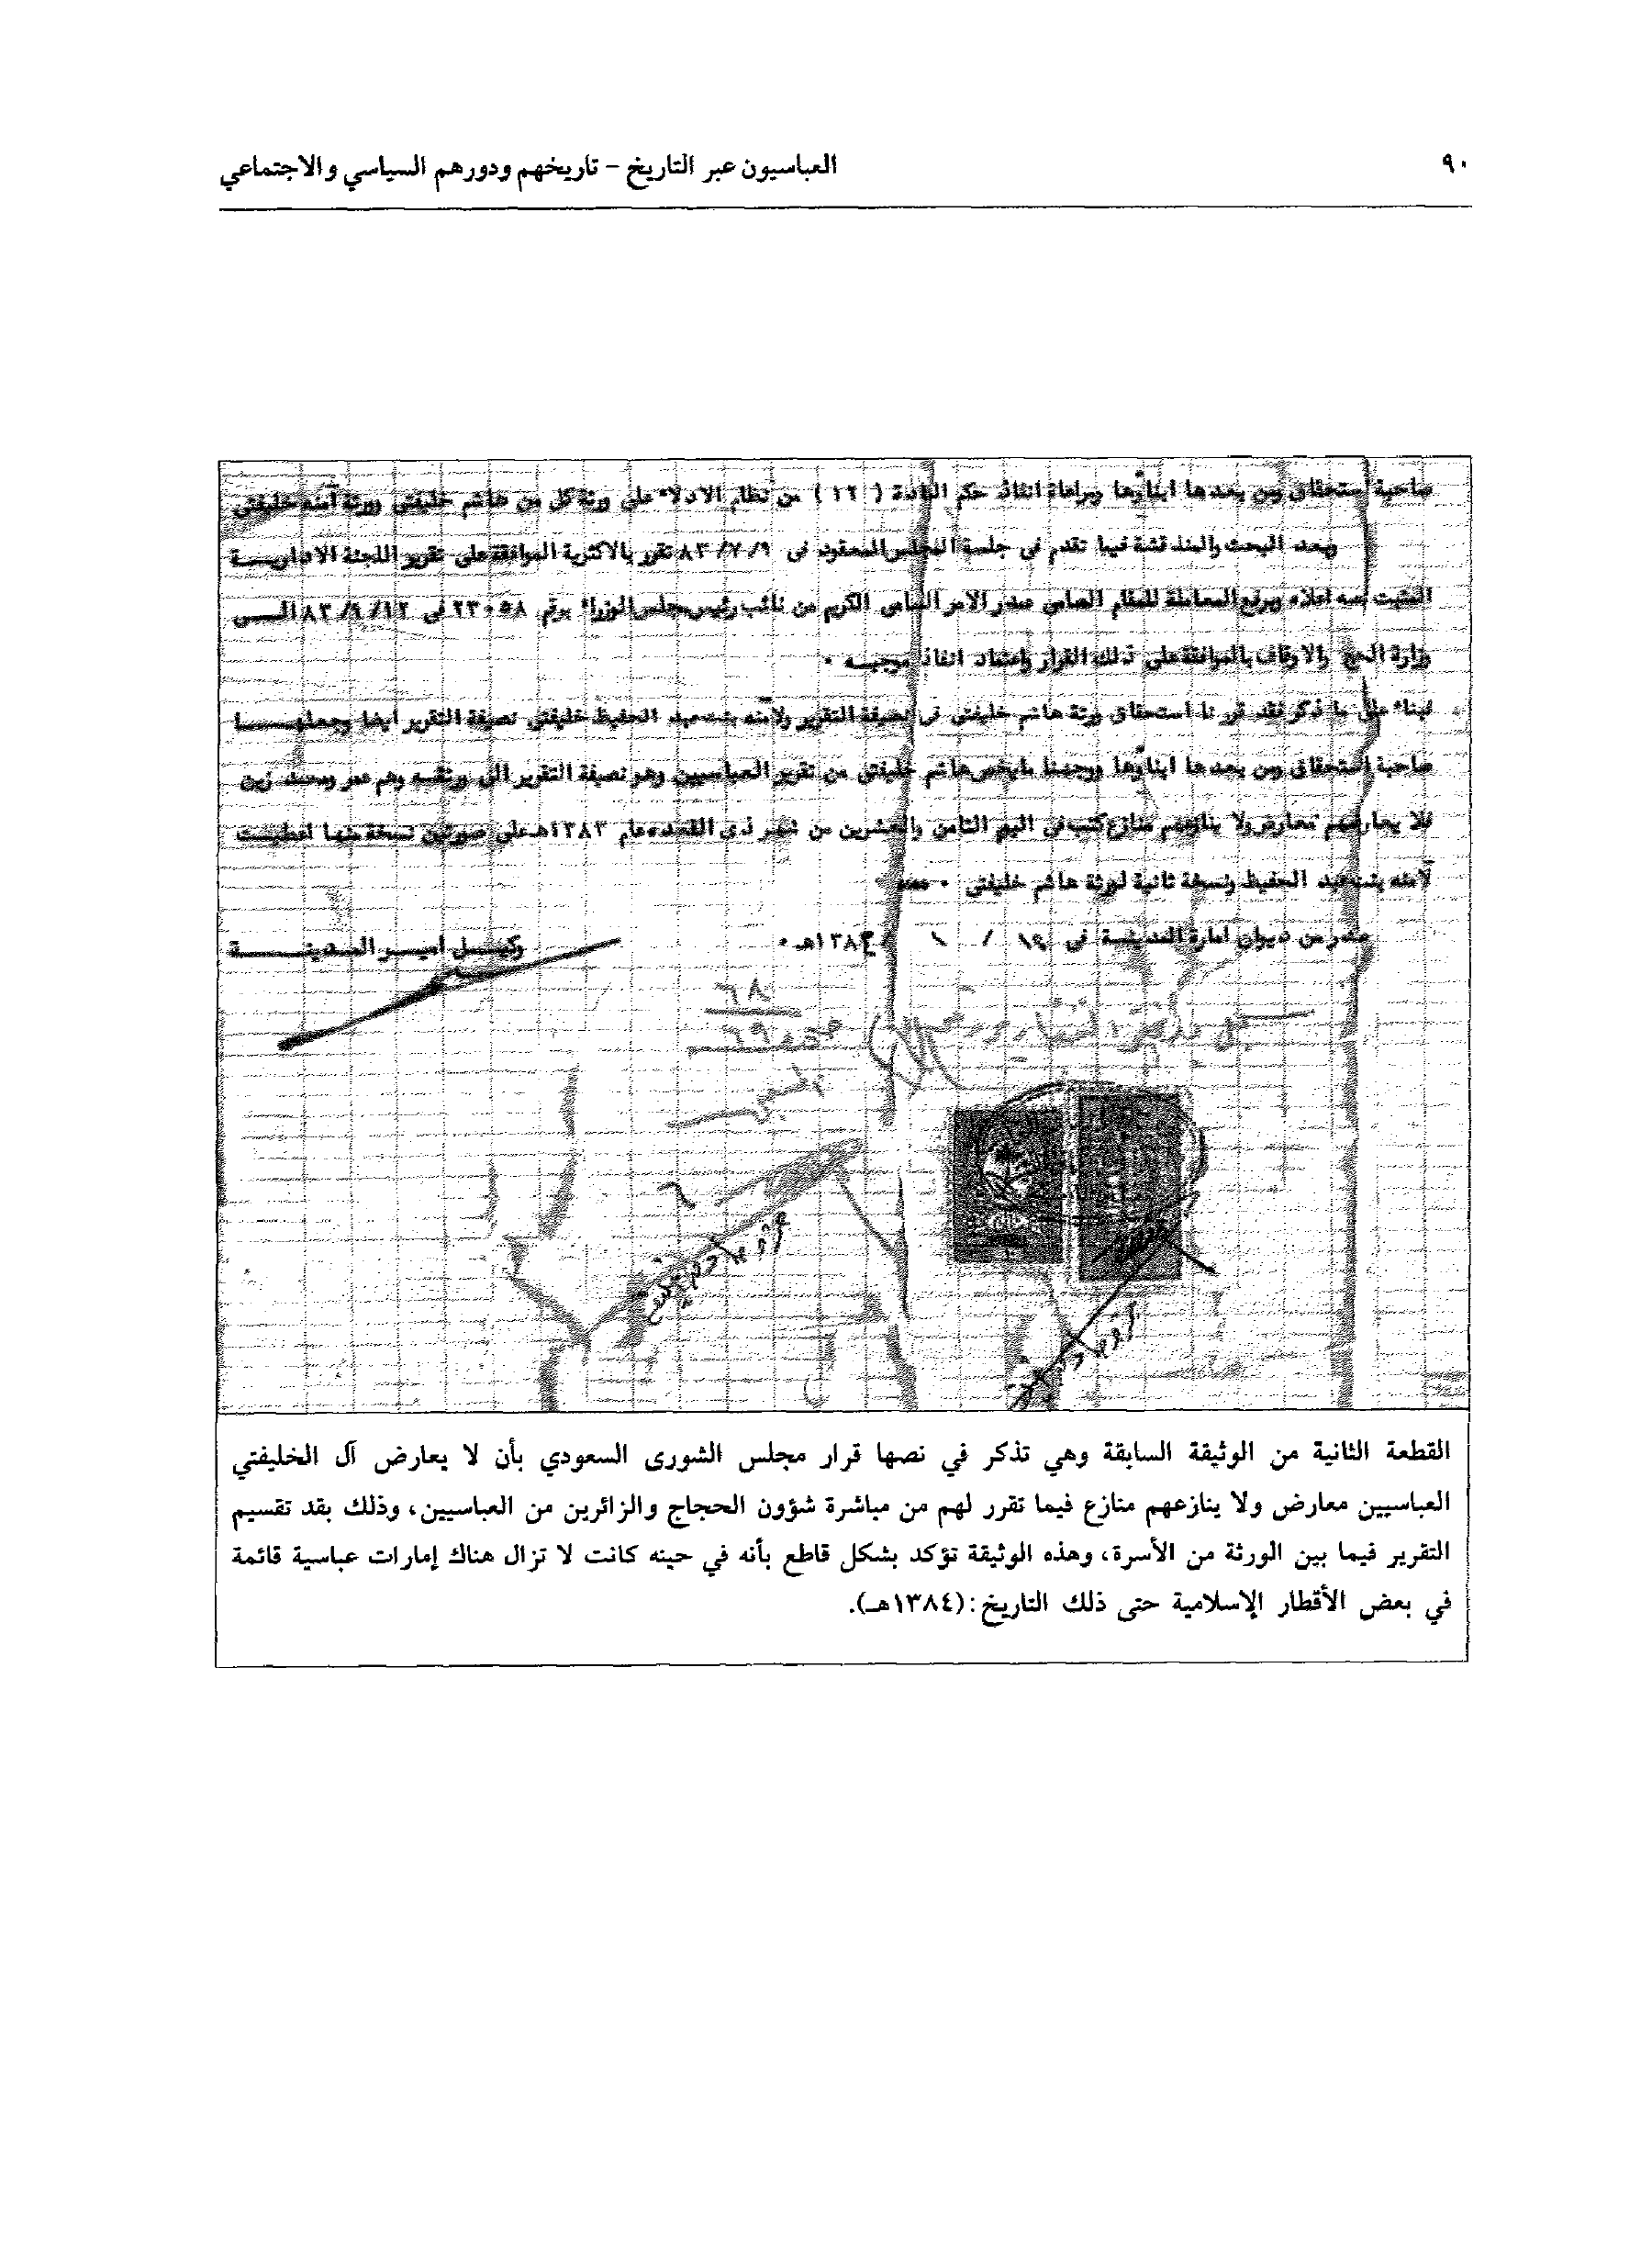 ٩٠
العباسيون عبر التاريخ – تاريخهم ودورهم السياسي والاجتماعي
صاحبة استحقاق ومن بعدها ابناؤها ومراعاة انفاذ حكم المادة ( ١٢ ) من نظام الادلاء على ورثة كل من هاشم خليفتى وورثة آمنه خليفتى
وبعد البحث والمناقشة فيما تقدم فى جلسة المجلس المعقود فى ٨٣/٧/٩ تقرر بالاكثرية الموافقة على تقرير اللجنة الادارية
المثبت نصه اعلاه وبرفع المعاملة للمقام السامى صدر الامر السامى الكريم من نائب رئيس مجلس الوزراء برقم ٢٣٠٥٨ فى ٨٣/٩/١٢ الى
وزارة الحج والاوقاف بالموافقة على ذلك القرار واعتماد انفاذ موجبه ٠
فبناء على ما ذكر فقد قررنا استحقاق ورثة هاشم خليفتى فى نصيفة التقرير ولآمنه بنت عبد الحفيظ خليفتى نصيفة التقرير ايضا وجعلها
صاحبة استحقاق ومن بعدها ابناؤها ووجهنا مايخص هاشم خليفتى من تقرير العباسيين وهو نصيفة التقرير الى ورثته وهم عمر ومحمد زين
فلا يعارضهم معارض ولا ينازعهم منازع كتب فى اليوم الثامن والعشرين من شهر ذى القعده عام ١٣٨٣هـ على صورتين نسخة منها اعطيت
لآمنه بنت عبد الحفيظ ونسخة ثانية لورثة هاشم خليفتى ٠
صدر من ديوان امارة المدينة فى ١٩ / ١ / ١٣٨٤هـ ٠ وكيل امير المدينة
القطعة الثانية من الوثيقة السابقة وهي تذكر في نصها قرار مجلس الشورى السعودي بأن لا يعارض آل الخليفتي
العباسيين معارض ولا ينازعهم منازع فيما تقرر لهم من مباشرة شؤون الحجاج والزائرين من العباسيين، وذلك بقد تقسيم
التقرير فيما بين الورثة من الأسرة، وهذه الوثيقة تؤكد بشكل قاطع بأنه في حينه كانت لا تزال هناك إمارات عباسية قائمة
في بعض الأقطار الإسلامية حتى ذلك التاريخ: (١٣٨٤هـ).